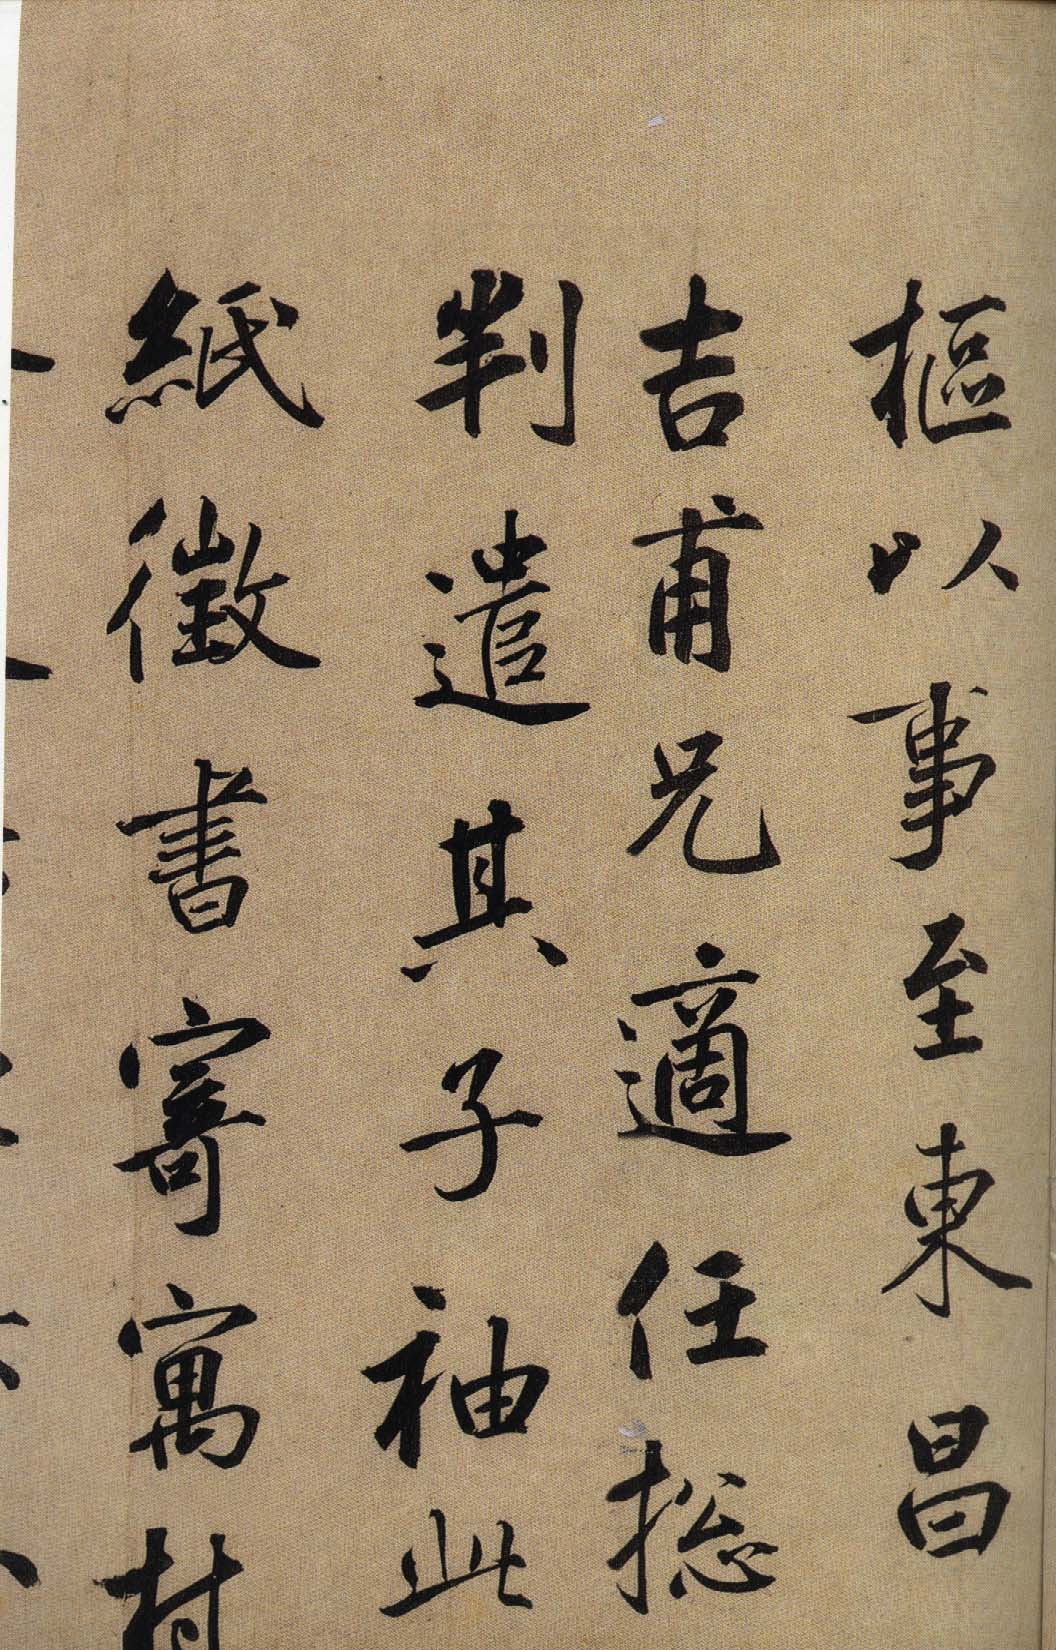 樞以事至東昌
吉甫兄適任捴
判遣其子袖此
紙徵書寄寓村